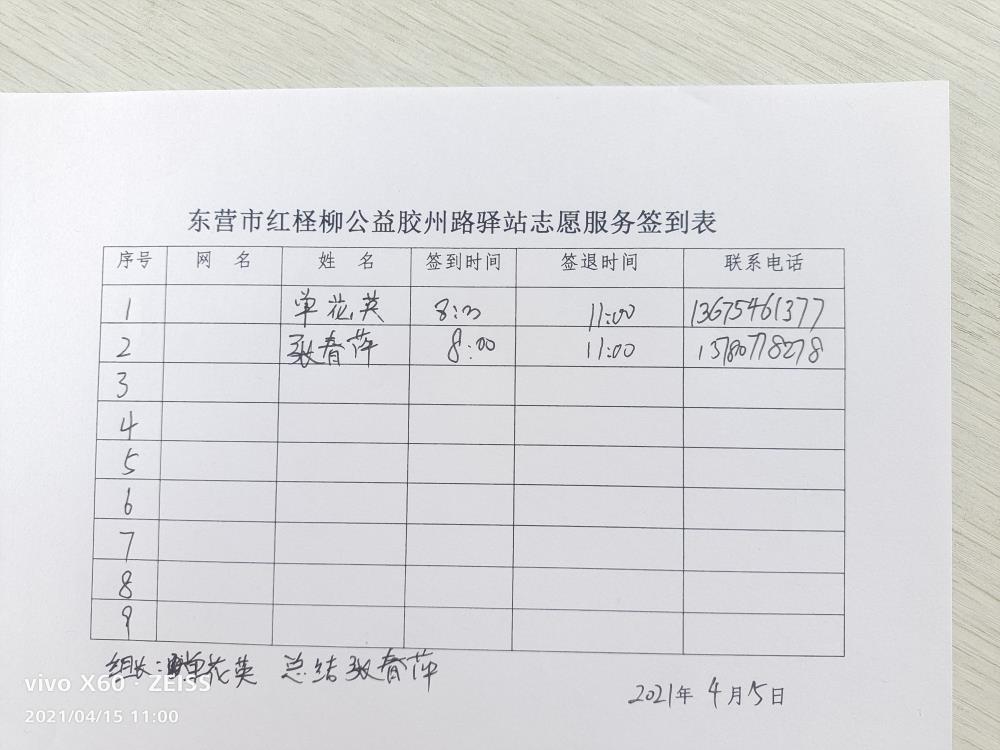 东营市红柽柳公益胶州路驿站志愿服务签到表
序号 网 名 姓 名 签到时间 签退时间 联系电话
1 单花英 8:00 11:00 13675461377
2 张春萍 8:00 11:00
3
4
5
6
7
8
9
组长: 单花英 总结 张春萍
2021年 4月5日
vivo X60 · ZEISS
2021/04/15 11:00